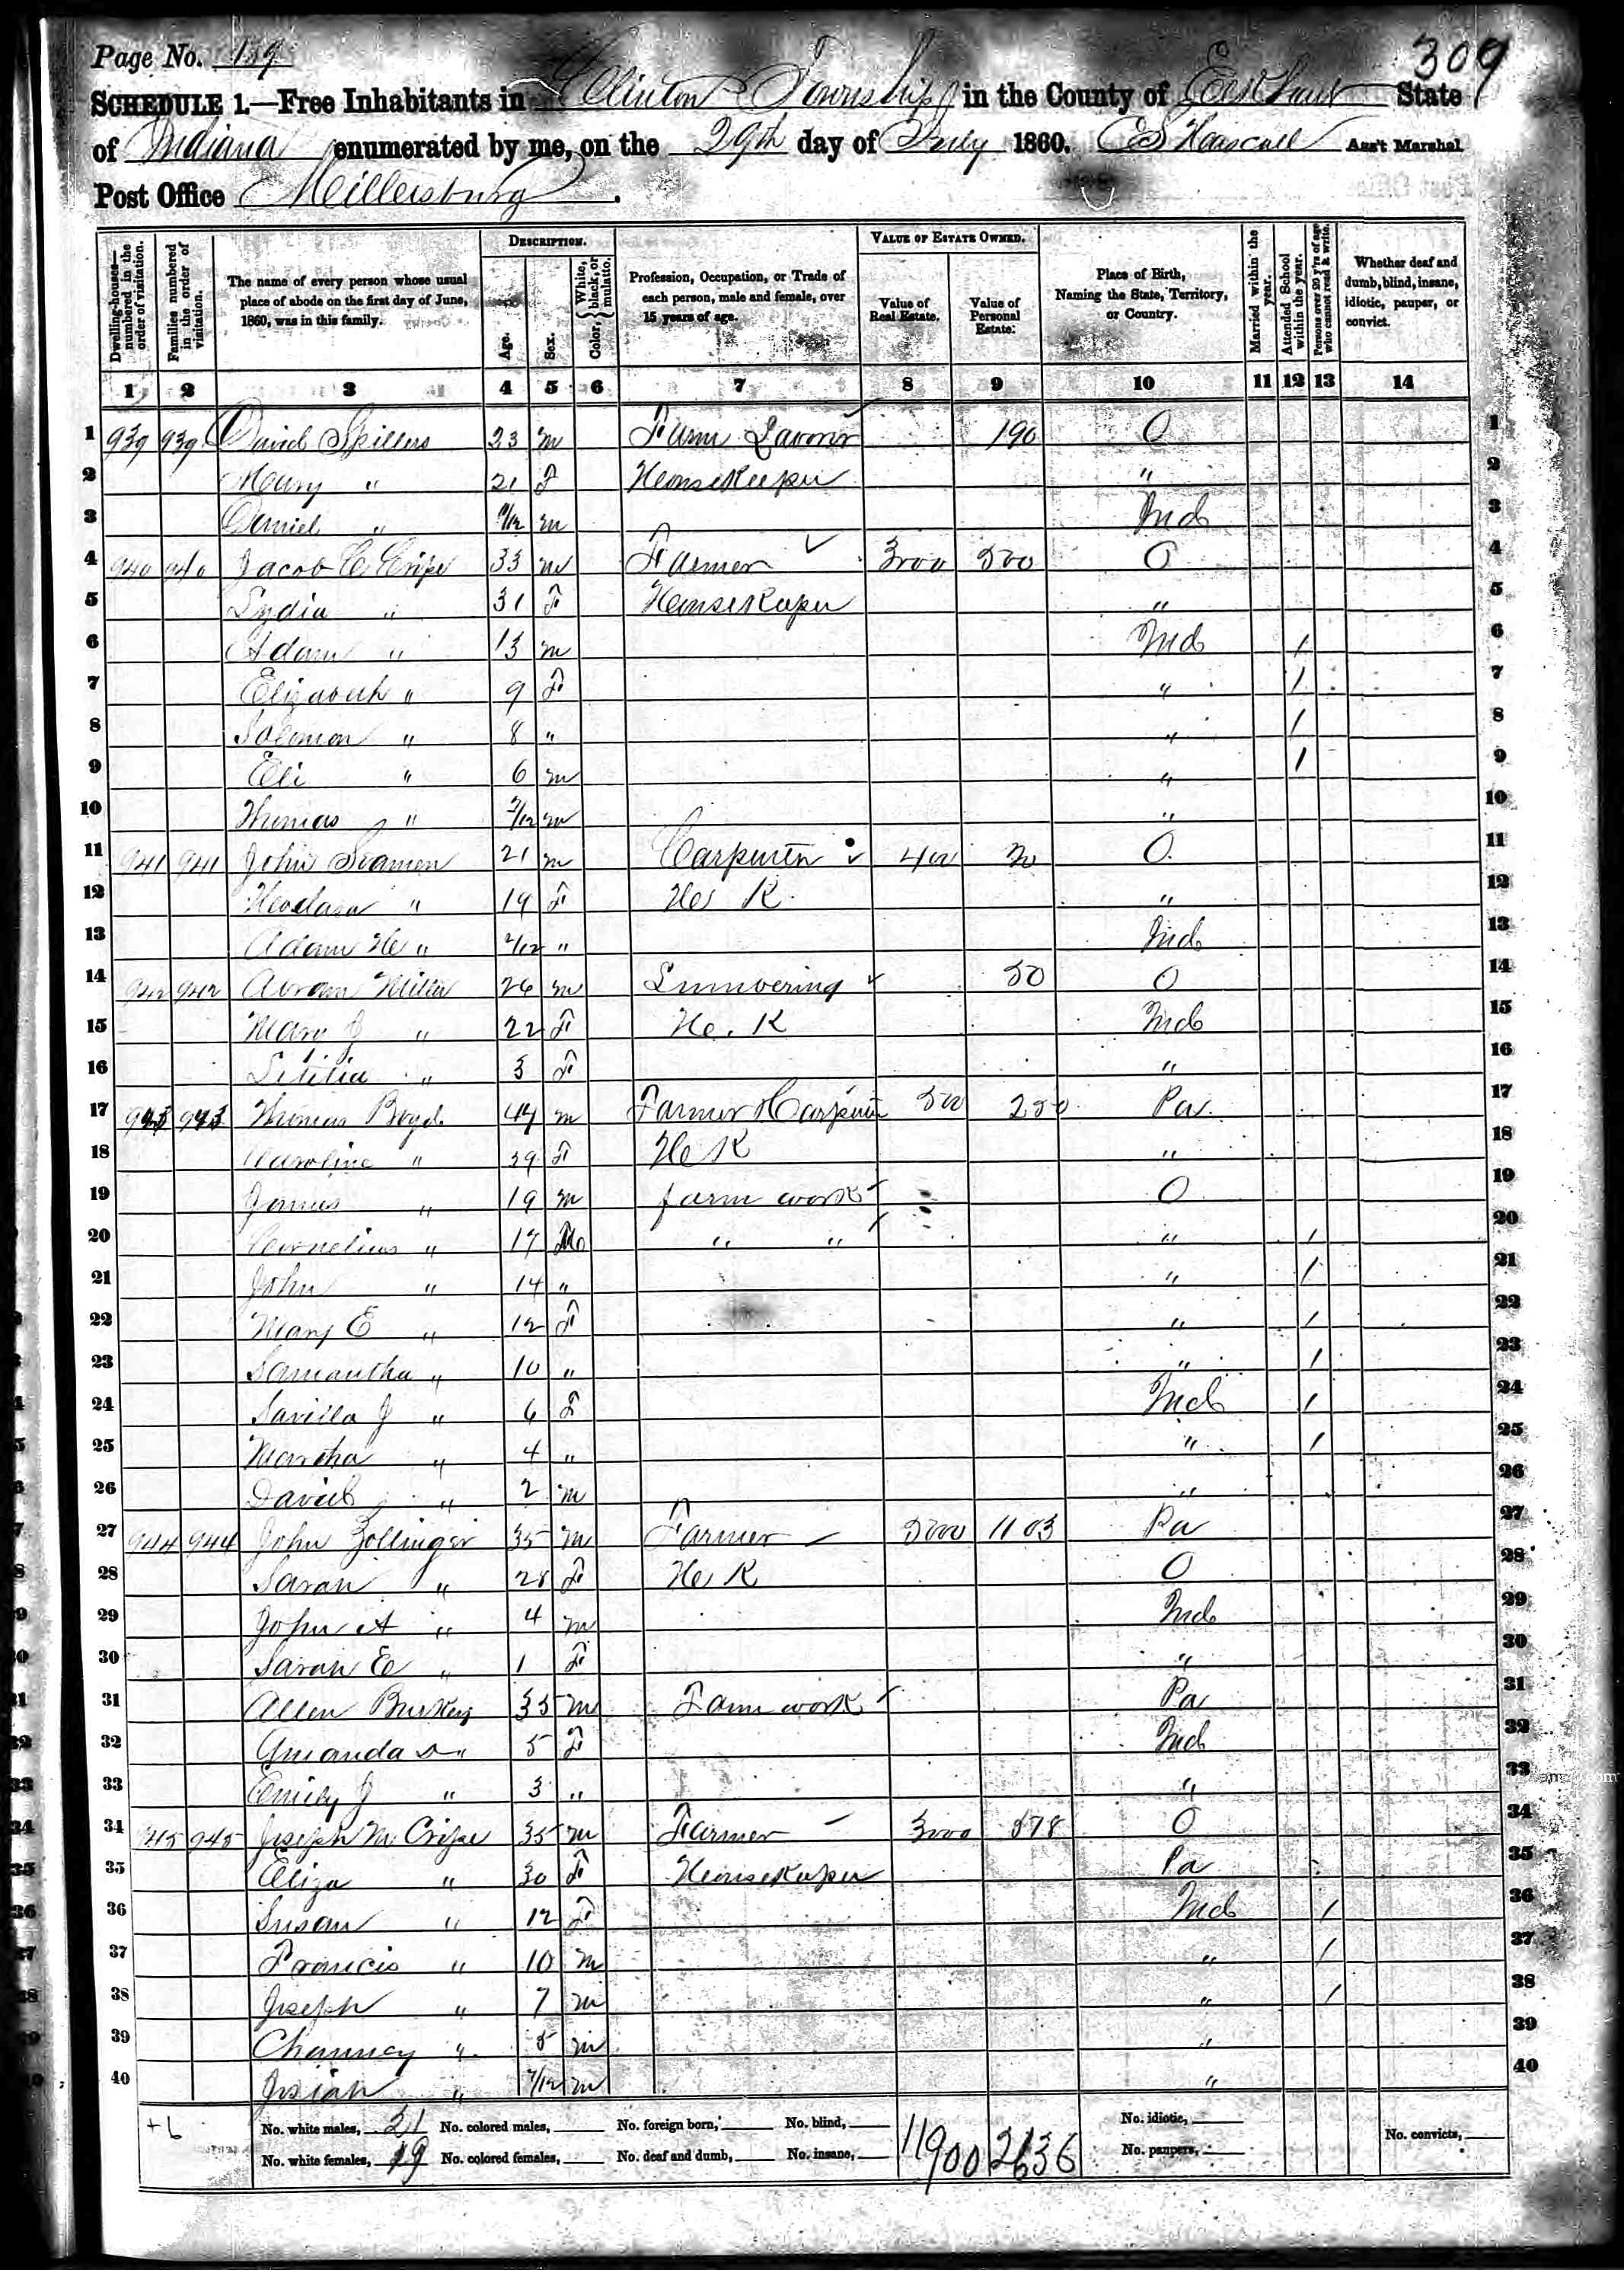 Page No. 189
309
SCHEDULE 1.—Free Inhabitants in Clinton Township in the County of Elkhart State
of Indiana enumerated by me, on the 29th day of July 1860. Ass't Marshal
Post Office Millersburg.
Dwelling-houses—numbered in the order of visitation. Families numbered in the order of visitation. The name of every person whose usual place of abode on the first day of June, 1860, was in this family. DESCRIPTION. Age. Sex. Color, {White, black, or mulatto. Profession, Occupation, or Trade of each person, male and female, over 15 years of age. VALUE OF ESTATE OWNED. Value of Real Estate. Value of Personal Estate. Place of Birth, Naming the State, Territory, or Country. Married within the year. Attended School within the year. Persons over 20 y'rs of age who cannot read & write. Whether deaf and dumb, blind, insane, idiotic, pauper, or convict.
1 2 3 4 5 6 7 8 9 10 11 12 13 14
1 939 939 David Spillers 23 m Farm Laborer 190 O 1
2 Mary " 21 F Housekeeper " 2
3 Daniel " m Ind 3
4 940 940 Jacob C Cripe 33 m Farmer 3000 500 O 4
5 Lydia " 31 F Housekeeper " 5
6 Adam " 13 m Ind / 6
7 Elizabeth " 9 F " / 7
8 Solomon " 8 " " / 8
9 Eli " 6 m " / 9
10 Thomas " m " 10
11 941 941 John Seamen 21 m Carpenter 400 O 11
12 " 19 F Ho K " 12
13 Adam H " 2/12 " Ind 13
14 942 942 Abram Miller 26 m Lumbering 50 O 14
15 Mary J " 22 F Ho. K Ind 15
16 Letitia " 3 F " 16
17 943 943 Thomas Boyd 44 m Farmer & Carpenter 500 250 Pa 17
18 Caroline " 39 F Ho K " 18
19 James " 19 m farm work O 19
20 Cornelius " 17 M " " " / 20
21 John " 14 " " / 21
22 Mary E " 12 F " / 22
23 Samantha " 10 " " / 23
24 Savilla J " 6 F Ind / 24
25 Martha " 4 " " / 25
26 David " 2 m " 26
27 944 944 John Zollinger 35 m Farmer 5000 1103 Pa 27
28 Sarah " 28 F Ho K O 28
29 John A " 4 m Ind 29
30 Sarah E " 1 F " 30
31 Allen Burkey 35 m Farm work Pa 31
32 Amanda " 5 F Ind 32
33 Emily J " 3 " " 33
34 945 945 Joseph M Cripe 35 m Farmer 3000 578 O 34
35 Eliza " 30 F Housekeeper Pa 35
36 Susan " 12 F Ind / 36
37 Francis " 10 m " / 37
38 Joseph " 7 m " / 38
39 Chauncy " 5 m " 39
40 Josiah " 7/12 m " 40
+6 No. white males, 21 No. colored males, No. foreign born, No. blind, 11900 No. idiotic,
No. white females, 19 No. colored females, No. deaf and dumb, No. insane, No. paupers, No. convicts,